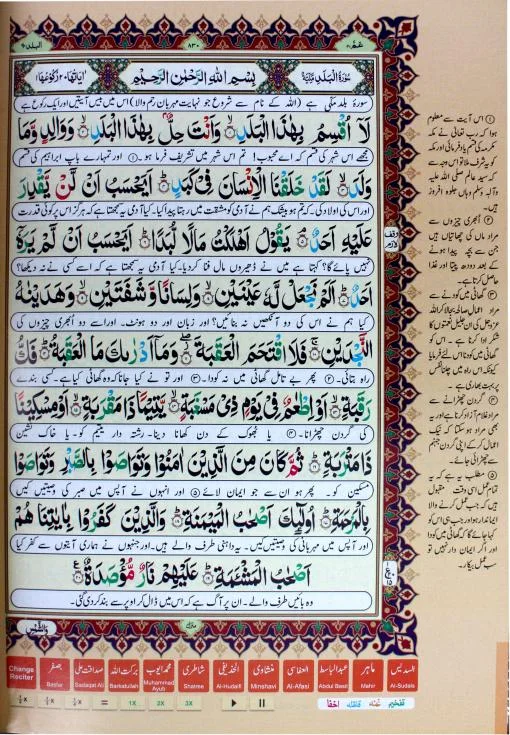 البلد ٩٠
٨٣٠
عمّ ٣٠
سُوْرَةُ الْبَلَدِ مَكِّيَّةٌ
بِسْمِ اللّٰهِ الرَّحْمٰنِ الرَّحِيْمِ
اٰيَاتُهَا ٢٠ رُكُوْعُهَا ١
سورۂ بلد مکی ہے (اللہ کے نام سے شروع جو نہایت مہربان رحم والا) اس میں بیس آیتیں اور ایک رکوع ہے
لَاۤ اُقْسِمُ بِهٰذَا الْبَلَدِ ۙ وَاَنْتَ حِلٌّۢ بِهٰذَا الْبَلَدِ ۙ وَوَالِدٍ وَّمَا
مجھے اس شہر کی قسم کہ اے محبوب! تم اس شہر میں تشریف فرما ہو۔ اور تمہارے باپ ابراہیم کی قسم
وَلَدَ ۙ لَقَدْ خَلَقْنَا الْاِنْسَانَ فِیْ كَبَدٍ ۙ اَيَحْسَبُ اَنْ لَّنْ يَّقْدِرَ
اور اس کی اولاد کی۔ کہ تم ہو بیشک ہم نے آدمی کو مشقت میں رہتا پیدا کیا۔ کیا آدمی یہ سمجھتا ہے کہ ہرگز اس پر کوئی قدرت
عَلَيْهِ اَحَدٌ ۘ يَقُوْلُ اَهْلَكْتُ مَالًا لُّبَدًا ۙ اَيَحْسَبُ اَنْ لَّمْ يَرَهٗۤ
نہیں پائے گا؟ کہتا ہے میں نے ڈھیروں مال فنا کردیا۔ کیا آدمی یہ سمجھتا ہے کہ اسے کسی نے نہ دیکھا؟
اَحَدٌ ۙ اَلَمْ نَجْعَلْ لَّهٗ عَيْنَيْنِ ۙ وَلِسَانًا وَّشَفَتَيْنِ ۙ وَهَدَيْنٰهُ
کیا ہم نے اس کی دو آنکھیں نہ بنائیں؟ اور زبان اور دو ہونٹ۔ اور اسے دو اُبھری چیزوں کی
النَّجْدَيْنِ ۚ فَلَا اقْتَحَمَ الْعَقَبَةَ ۖ وَمَاۤ اَدْرٰىكَ مَا الْعَقَبَةُ ۙ فَكُّ
راہ بتائی۔ پھر بے تامل گھاٹی میں نہ کودا۔ اور تو نے کیا جانا کہ وہ گھاٹی کیا ہے۔ کسی بندے
رَقَبَةٍ ۙ اَوْ اِطْعٰمٌ فِیْ يَوْمٍ ذِیْ مَسْغَبَةٍ ۙ يَّتِيْمًا ذَا مَقْرَبَةٍ ۙ اَوْ مِسْكِيْنًا
کی گردن چھڑانا۔ یا بھوک کے دن کھانا دینا۔ رشتہ دار یتیم کو۔ یا خاک نشین
ذَا مَتْرَبَةٍ ۙ ثُمَّ كَانَ مِنَ الَّذِيْنَ اٰمَنُوْا وَتَوَاصَوْا بِالصَّبْرِ وَتَوَاصَوْا
مسکین کو۔ پھر ہو ان سے جو ایمان لائے اور انہوں نے آپس میں صبر کی وصیتیں کیں
بِالْمَرْحَمَةِ ۙ اُولٰٓئِكَ اَصْحٰبُ الْمَيْمَنَةِ ۙ وَالَّذِيْنَ كَفَرُوْا بِاٰيٰتِنَا هُمْ
اور آپس میں مہربانی کی وصیتیں کیں۔ یہ داہنی طرف والے ہیں۔ اور جنہوں نے ہماری آیتوں سے کفر کیا
اَصْحٰبُ الْمَشْئَمَةِ ۙ عَلَيْهِمْ نَارٌ مُّؤْصَدَةٌ
وہ بائیں طرف والے۔ ان پر آگ ہے کہ اس میں ڈال کر اوپر سے بند کردی گئی۔
وقف لازم
۱ اس آیت سے معلوم
ہوا کہ رب تعالیٰ نے مکہ
مکرمہ کی قسم یاد فرمائی اور مکہ
کو یہ شرف ملا تو اس وجہ سے
کہ سید عالم صلی اللہ علیہ
وآلہ وسلم وہاں جلوہ افروز
ہیں۔
۲ اُبھری چیزوں سے
مراد ماں کی چھاتیاں ہیں
جن سے بچہ پیدا ہونے
کے بعد دودھ پیتا اور غذا
حاصل کرتا ہے۔
۳ گھاٹی میں کودنے سے
مراد اعمال صالحہ بجا لا کر اللہ
عزوجل کی ان جلیل نعمتوں کا
شکر ادا کرنا ہے۔ اس کو
گھاٹی میں کودنا اس لئے فرمایا
کیونکہ اس راہ میں چلنا نفس
پر بہت بھاری ہے۔
۴ گردن چھڑانے سے
مراد غلام آزاد کرنا ہے اور یہ
بھی مراد ہو سکتا کہ نیک
اعمال کر کے اپنی گردن جہنم
سے چھڑائی جائے۔
۵ مطلب یہ ہے کہ یہ
تمام عمل اسی وقت مقبول
ہیں کہ جب عمل کرنے والا
ایماندار ہو اور جب ہی اس کو
کہا جائے گا کہ گھاٹی میں کودا
اور اگر ایمان دار نہیں تو
سب عمل بیکار۔
منزل ٧
والشمس
Change Reciter
بصفر Basfar
صداقت علی Sadaqat Ali
برکت اللہ Barkatullah
محمد ایوب Muhammad Ayub
شاطری Shatree
الحذیفی Al-Hudaifi
منشاوی Minshavi
العفاسی Al-Afasi
عبدالباسط Abdul Basit
ماہر Mahir
السدیس Al-Sudais
1X
2X
3X
تفخیم غُنّہ قلقلہ اخفا